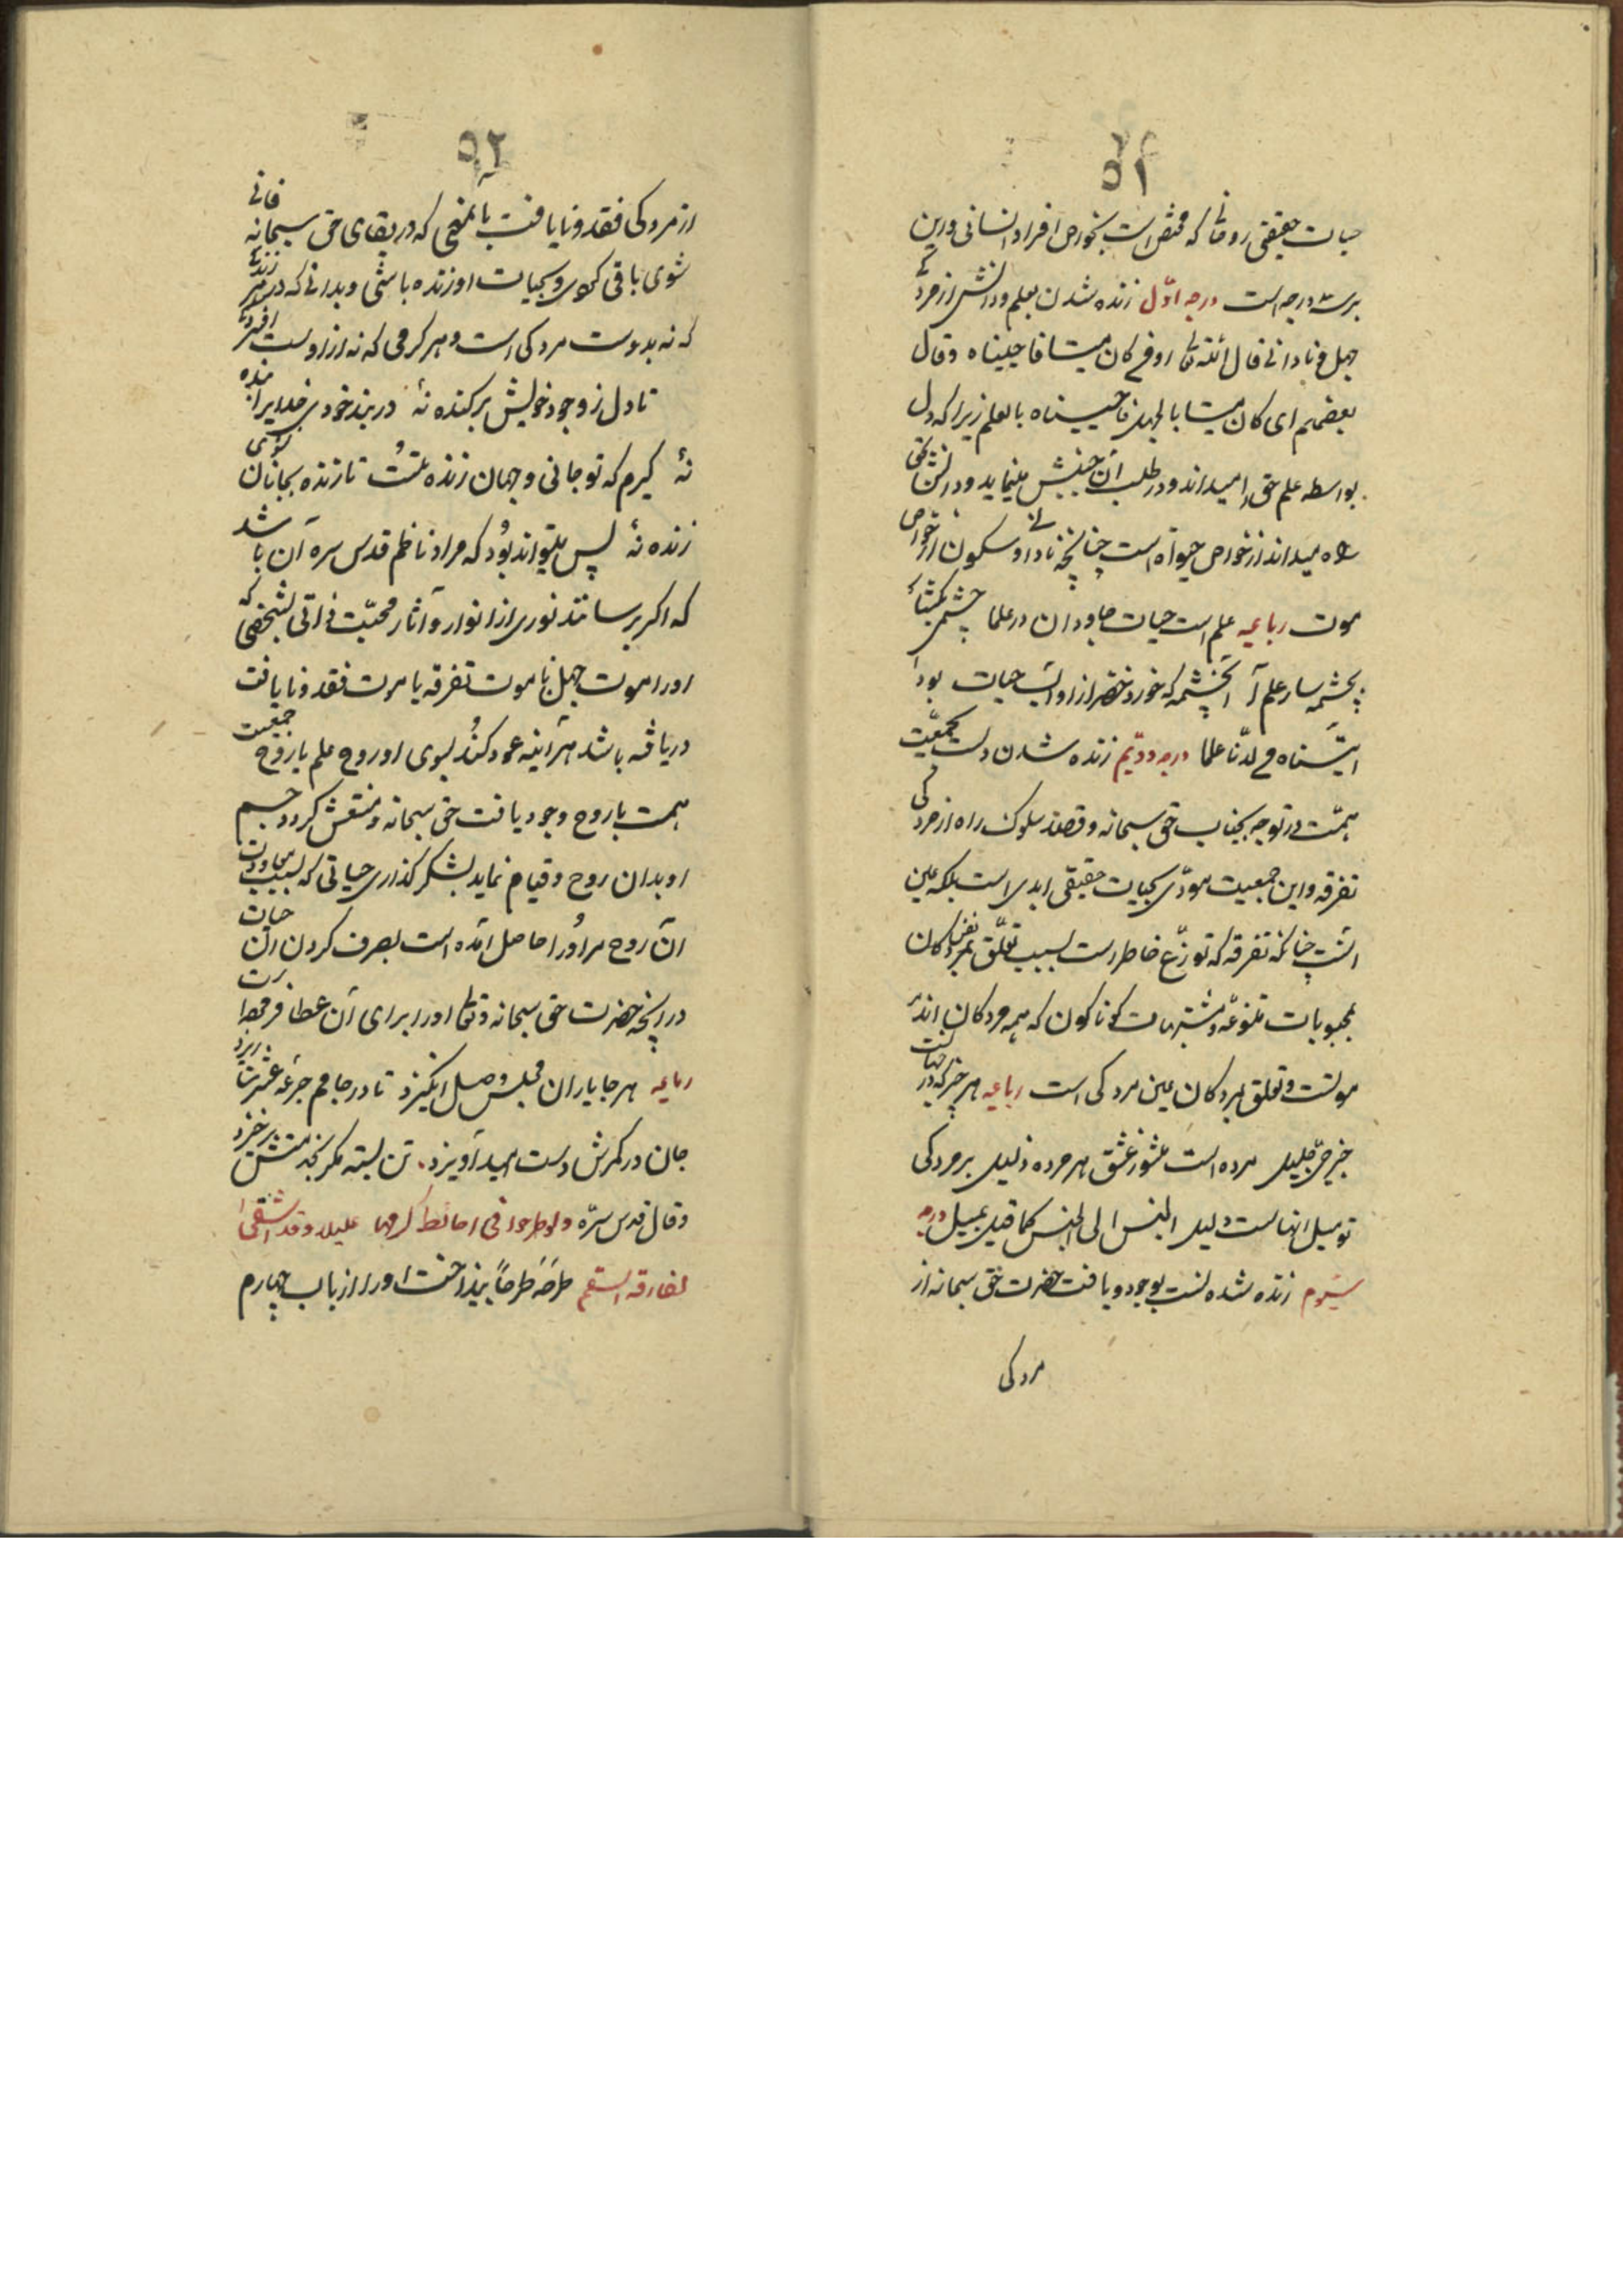 حیات حقیقی روحانی که مختص است بخواص افراد انسانی و این
برسه درجه است درجه اوّل زنده شدن بعلم و دانش از مردگی
جهل و نادانی قال الله تعالی او من کان میتا فاحییناه وقال
بعضهم ای کان میتا بالجهل فاحییناه بالعلم زیرا که دل
بواسطه علم حق را میداند و در طلب آن جنبش مینماید و دانش
از خواص حیوة است چنانچه نادانی و سکون از خواص
موت رباعیه علم است حیات جاودان در علما چشمی بگشا
بچشمه سار علم آ آنچشمه که خورد خضر ازو آب حیات بود
آتیناه من لدنّا علما درجه دویّم زنده شدن دلست بجمعیّت
همّت در توجه بجناب حق سبحانه و قصد سلوک راه از مردگی
تفرقه و این جمعیت مودّی بحیات حقیقی ابدی است بلکه عین
آنست چنانکه تفرقه که توزّع خاطر است بسبب تعلّق نفس بمردکان
بمحبوبات متنوّعه و مشتهیات کوناکون که همه مردکان اند
موتست و تعلق بمردکان عین مردکی است رباعیه هر چیز که در جهانست
جز حیّ جلیل مرده است مشو ز عشق هر مرده ذلیل بر مردکی
تو میل آنهاست دلیل الجنس الی الجنس کما قیل یمیل درجه
سیوم زنده شدنست بوجود و یافت حضرت حق سبحانه از
مردکی
۵۲
از مردکی فقد و نایافت بآنمعنی که در بقای حق سبحانه فانی
شوی باقی کردی و بحیات او زنده باشی و بدانی که هر زندگی
که نه بدوست مردکی است و هر کرمی که نه ازاوست افسردگی
تا دل ز وجود خویش برکنده نهٔ در بند خودی خدایرا بنده
نهٔ کیرم که تو جانی و جهان زنده بتست تا زنده بجانان نشوی
زنده نهٔ پس میتواند بود که مراد ناظم قدس سره آن باشد
که اکر برسانند نوری از انوار و آثار محبّت ذاتی بشخصی که
او را موت جهل یا موت تفرقه یا موت فقد و نایافت
دریافته باشد هرآینه عود کند بسوی او روح علم یا روح جمعیت
همت یا روح وجود یافت حق سبحانه و منتعش کردد جسم
او بدان روح و قیام نماید بشکر کذاری حیاتی که بسبب معاودت
آن روح مر او را حاصل آمده است بصرف کردن آن حیات
در آنچه حضرت حق سبحانه وتعالی او را برای آن عطا فرموده است
رباعیه هر جا یاران مجلس وصل انکیزد تا در جامم جرعه عشرت ریزد
جان در کمرش دست امید آویزد تن بسته کمر بخدمتش برخیزد
وقال قدس سرّه ولو طرحوا فی ء حائط کرمها علیلا وقد اشفی
لفارقه السقم طرحَه طرحاً بینداخت او را از باب چهارم